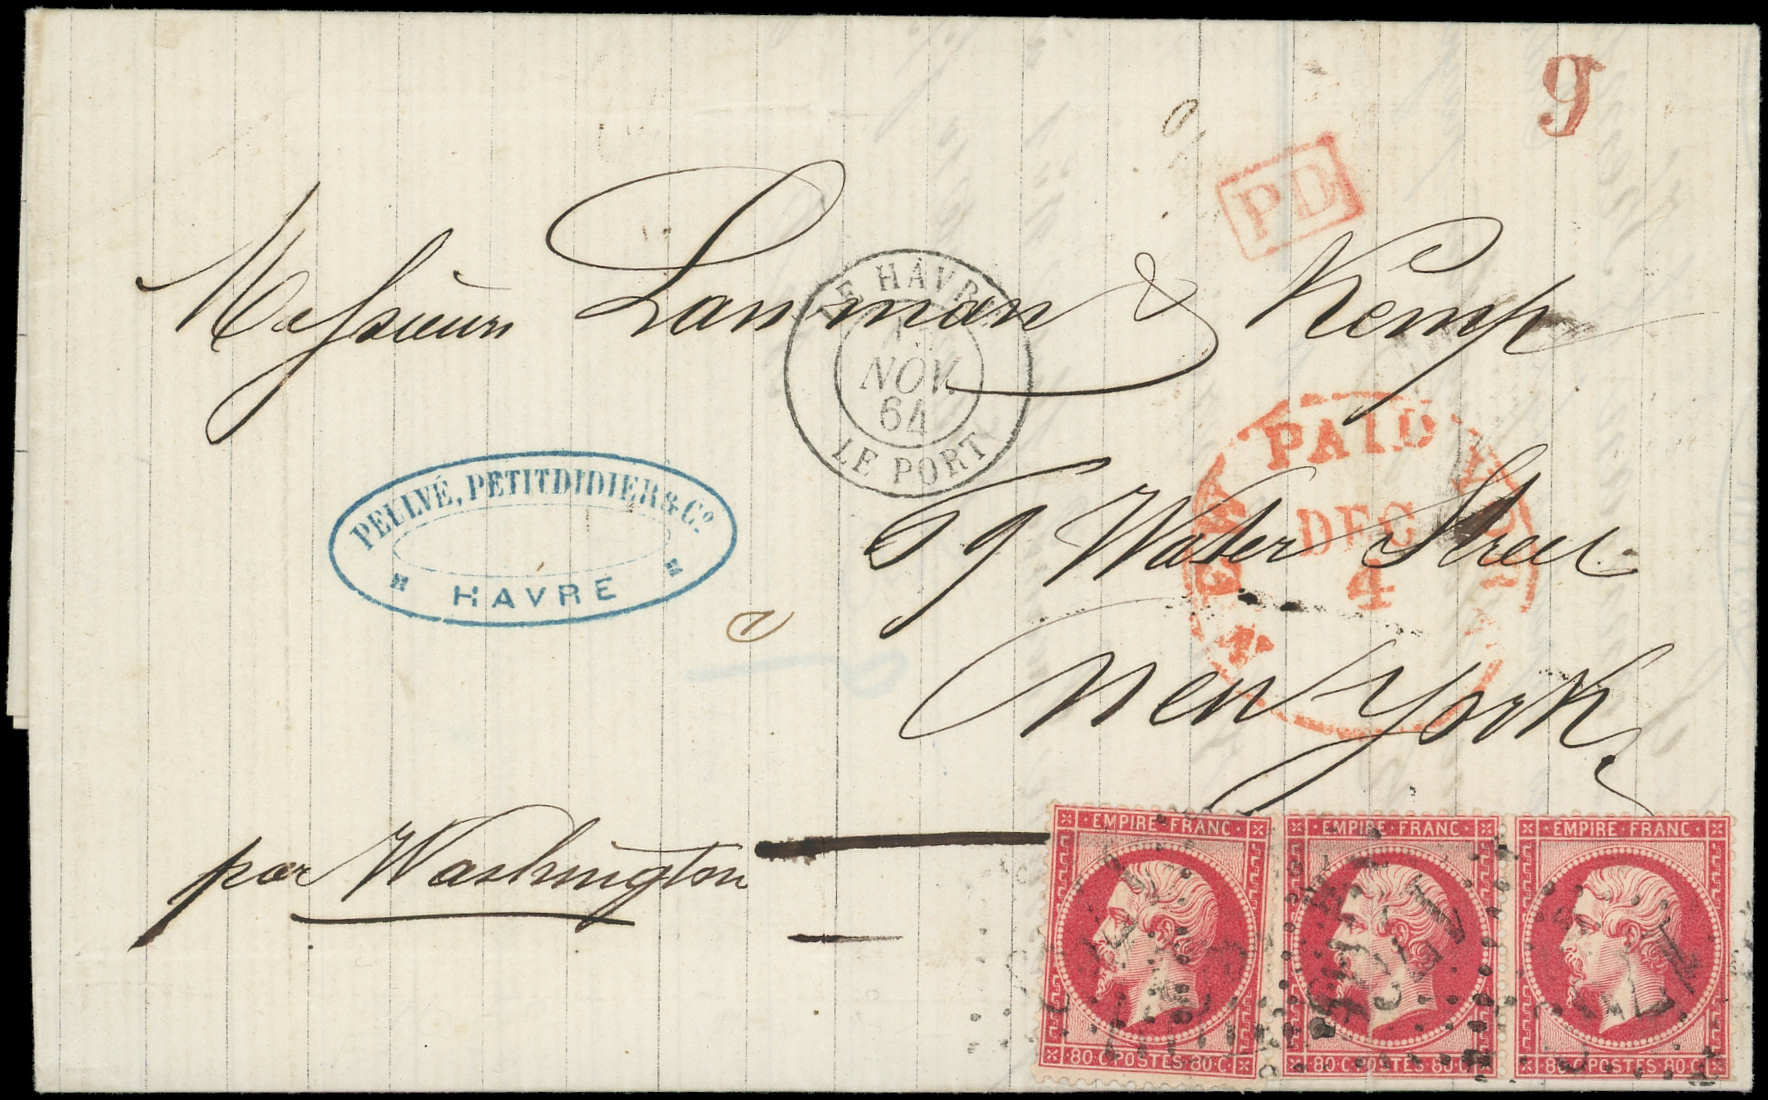 9
PD
Messieurs Lanman & Kemp
LE HAVRE
NOV.
64
LE PORT
PAID
NEW YORK
DEC
4
PELLVÉ, PETITDIDIER & Cº
HAVRE
69 Water Street
New York
par Washington
EMPIRE FRANC
80·C·POSTES·80·C
EMPIRE FRANC
80·C·POSTES·80·C
EMPIRE FRANC
80·C·POSTES·80·C